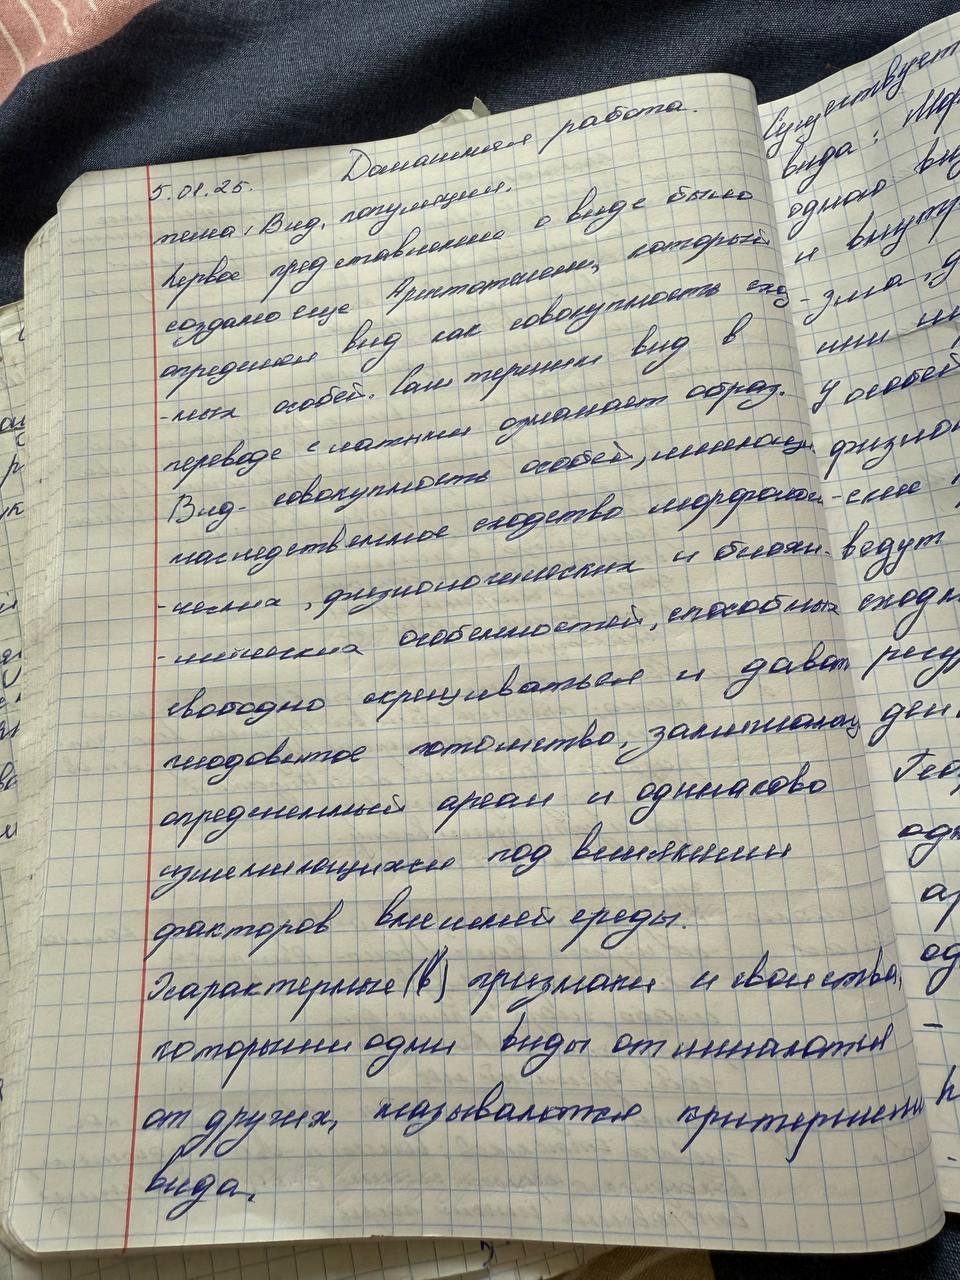 5.01.25. Домашняя работа.
тема: Вид, популяции.
Первое представление о виде было
создано еще Аристотелем, который
определил вид как совокупность сход
-ных особей. Сам термин вид в
переводе с латыни означает образ.
Вид- совокупность особей, имеющих
наследственное сходство морфологи
-ческих, физиологических и биохи-
-мических особенностей, способных
свободно скрещиваться и давать
плодовитое потомство, занимающ
определенный ареал и одинаково
изменяющихся под влиянием
факторов внешней среды.
Характерные (в) признаки и свойства,
которыми одни виды отличаются
от других, называются критериями
вида.
Существует
вида: Мор
одного ви
и внутр
-зма.
или
У особей
физиол
-ские
ведут
сходн
ден
Геог
одн
ар
од